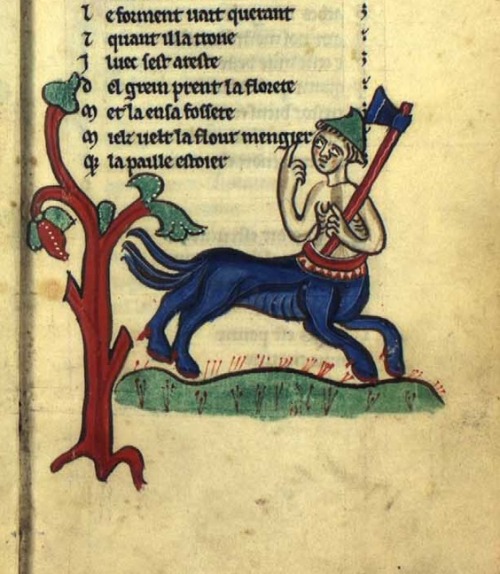 l e forment vart querant
z quant il la trone
j luec sest areste
d el grein prent la florete
m et la en sa fossete
m ielz uelt la flour mengier
q la paille estoier